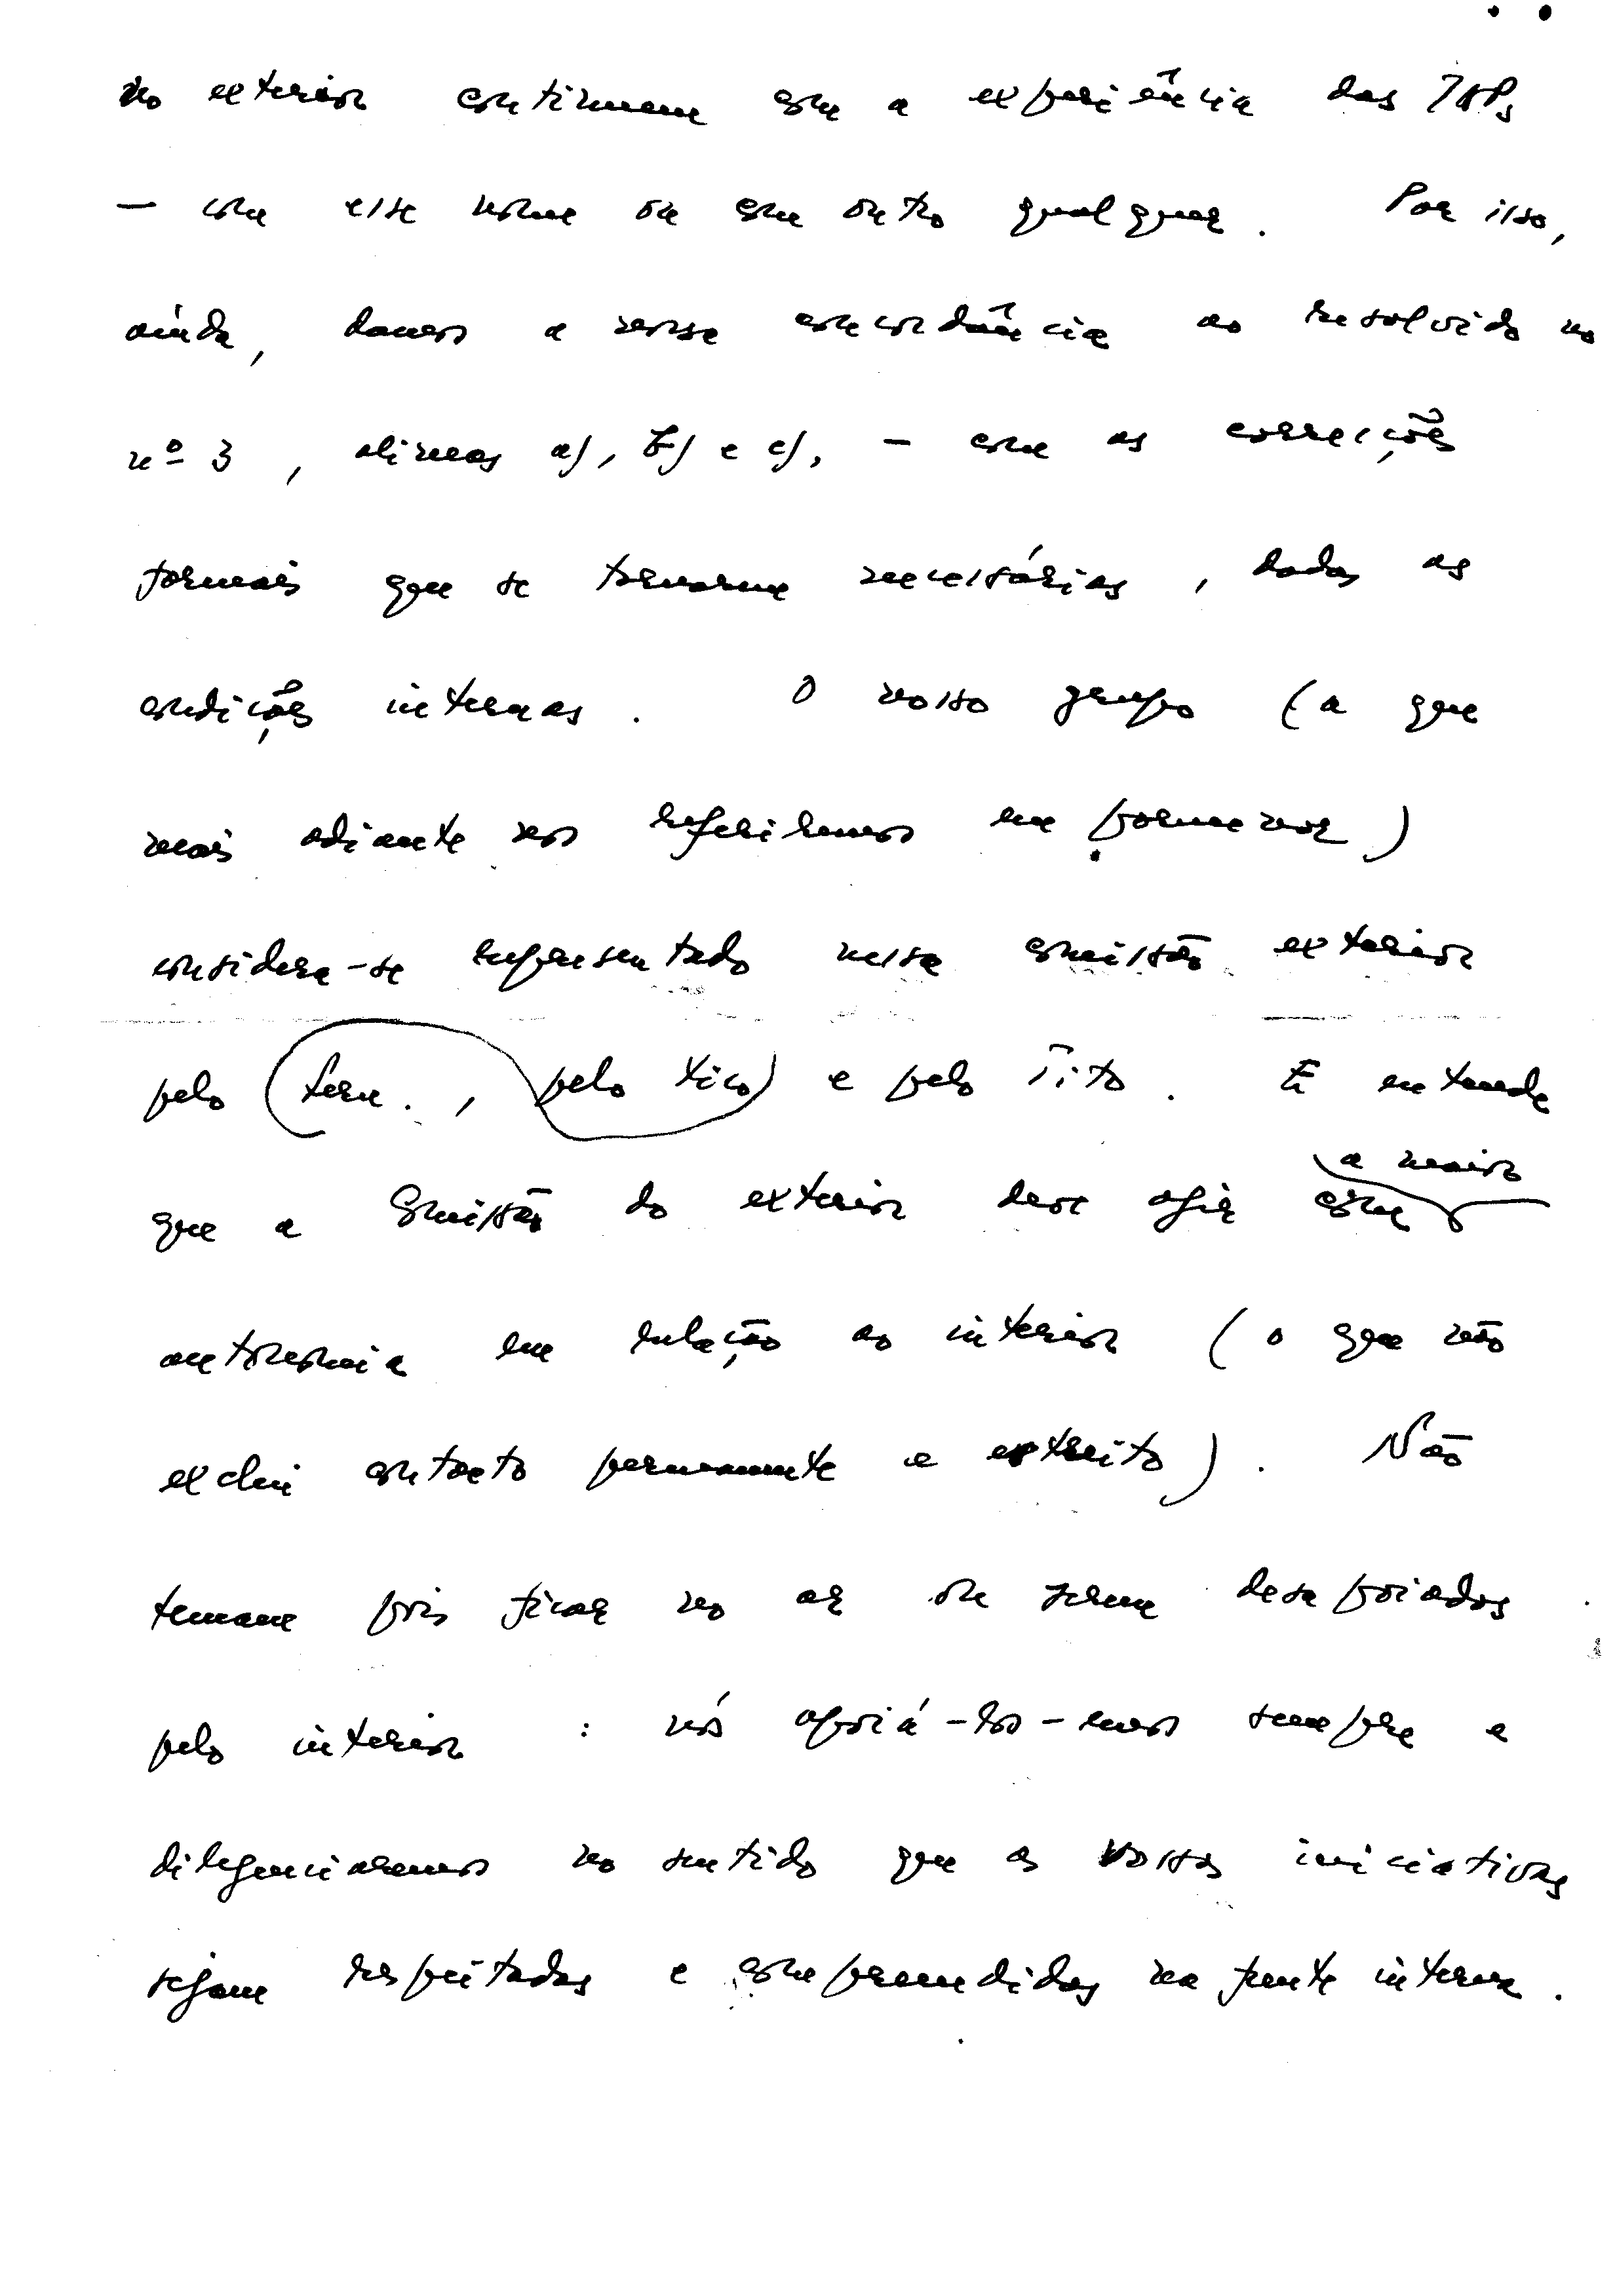 no exterior continuem com a experiência das JAPs
— com esse nome ou com outro qualquer. Por isso,
ainda, damos a nossa concordância ao resolvido no
nº 3, alíneas a), b) e c), — com as correcções
formais que se tornarem necessárias, dadas as
condições internas. O nosso grupo (a que
mais adiante nos referiremos em pormenor)
considera-se representado nessa comissão exterior
pelo (Fern., pelo Tico) e pelo Tito. E entende
que a Comissão do exterior deve agir com a maior
autonomia em relação ao interior (o que não
exclui contacto permanente e estreito). Não
temam pois ficar no ar ou serem desapoiados
pelo interior: nós apoiá-los-emos sempre e
diligenciaremos no sentido que as vossas iniciativas
sejam respeitadas e compreendidas na frente interna.